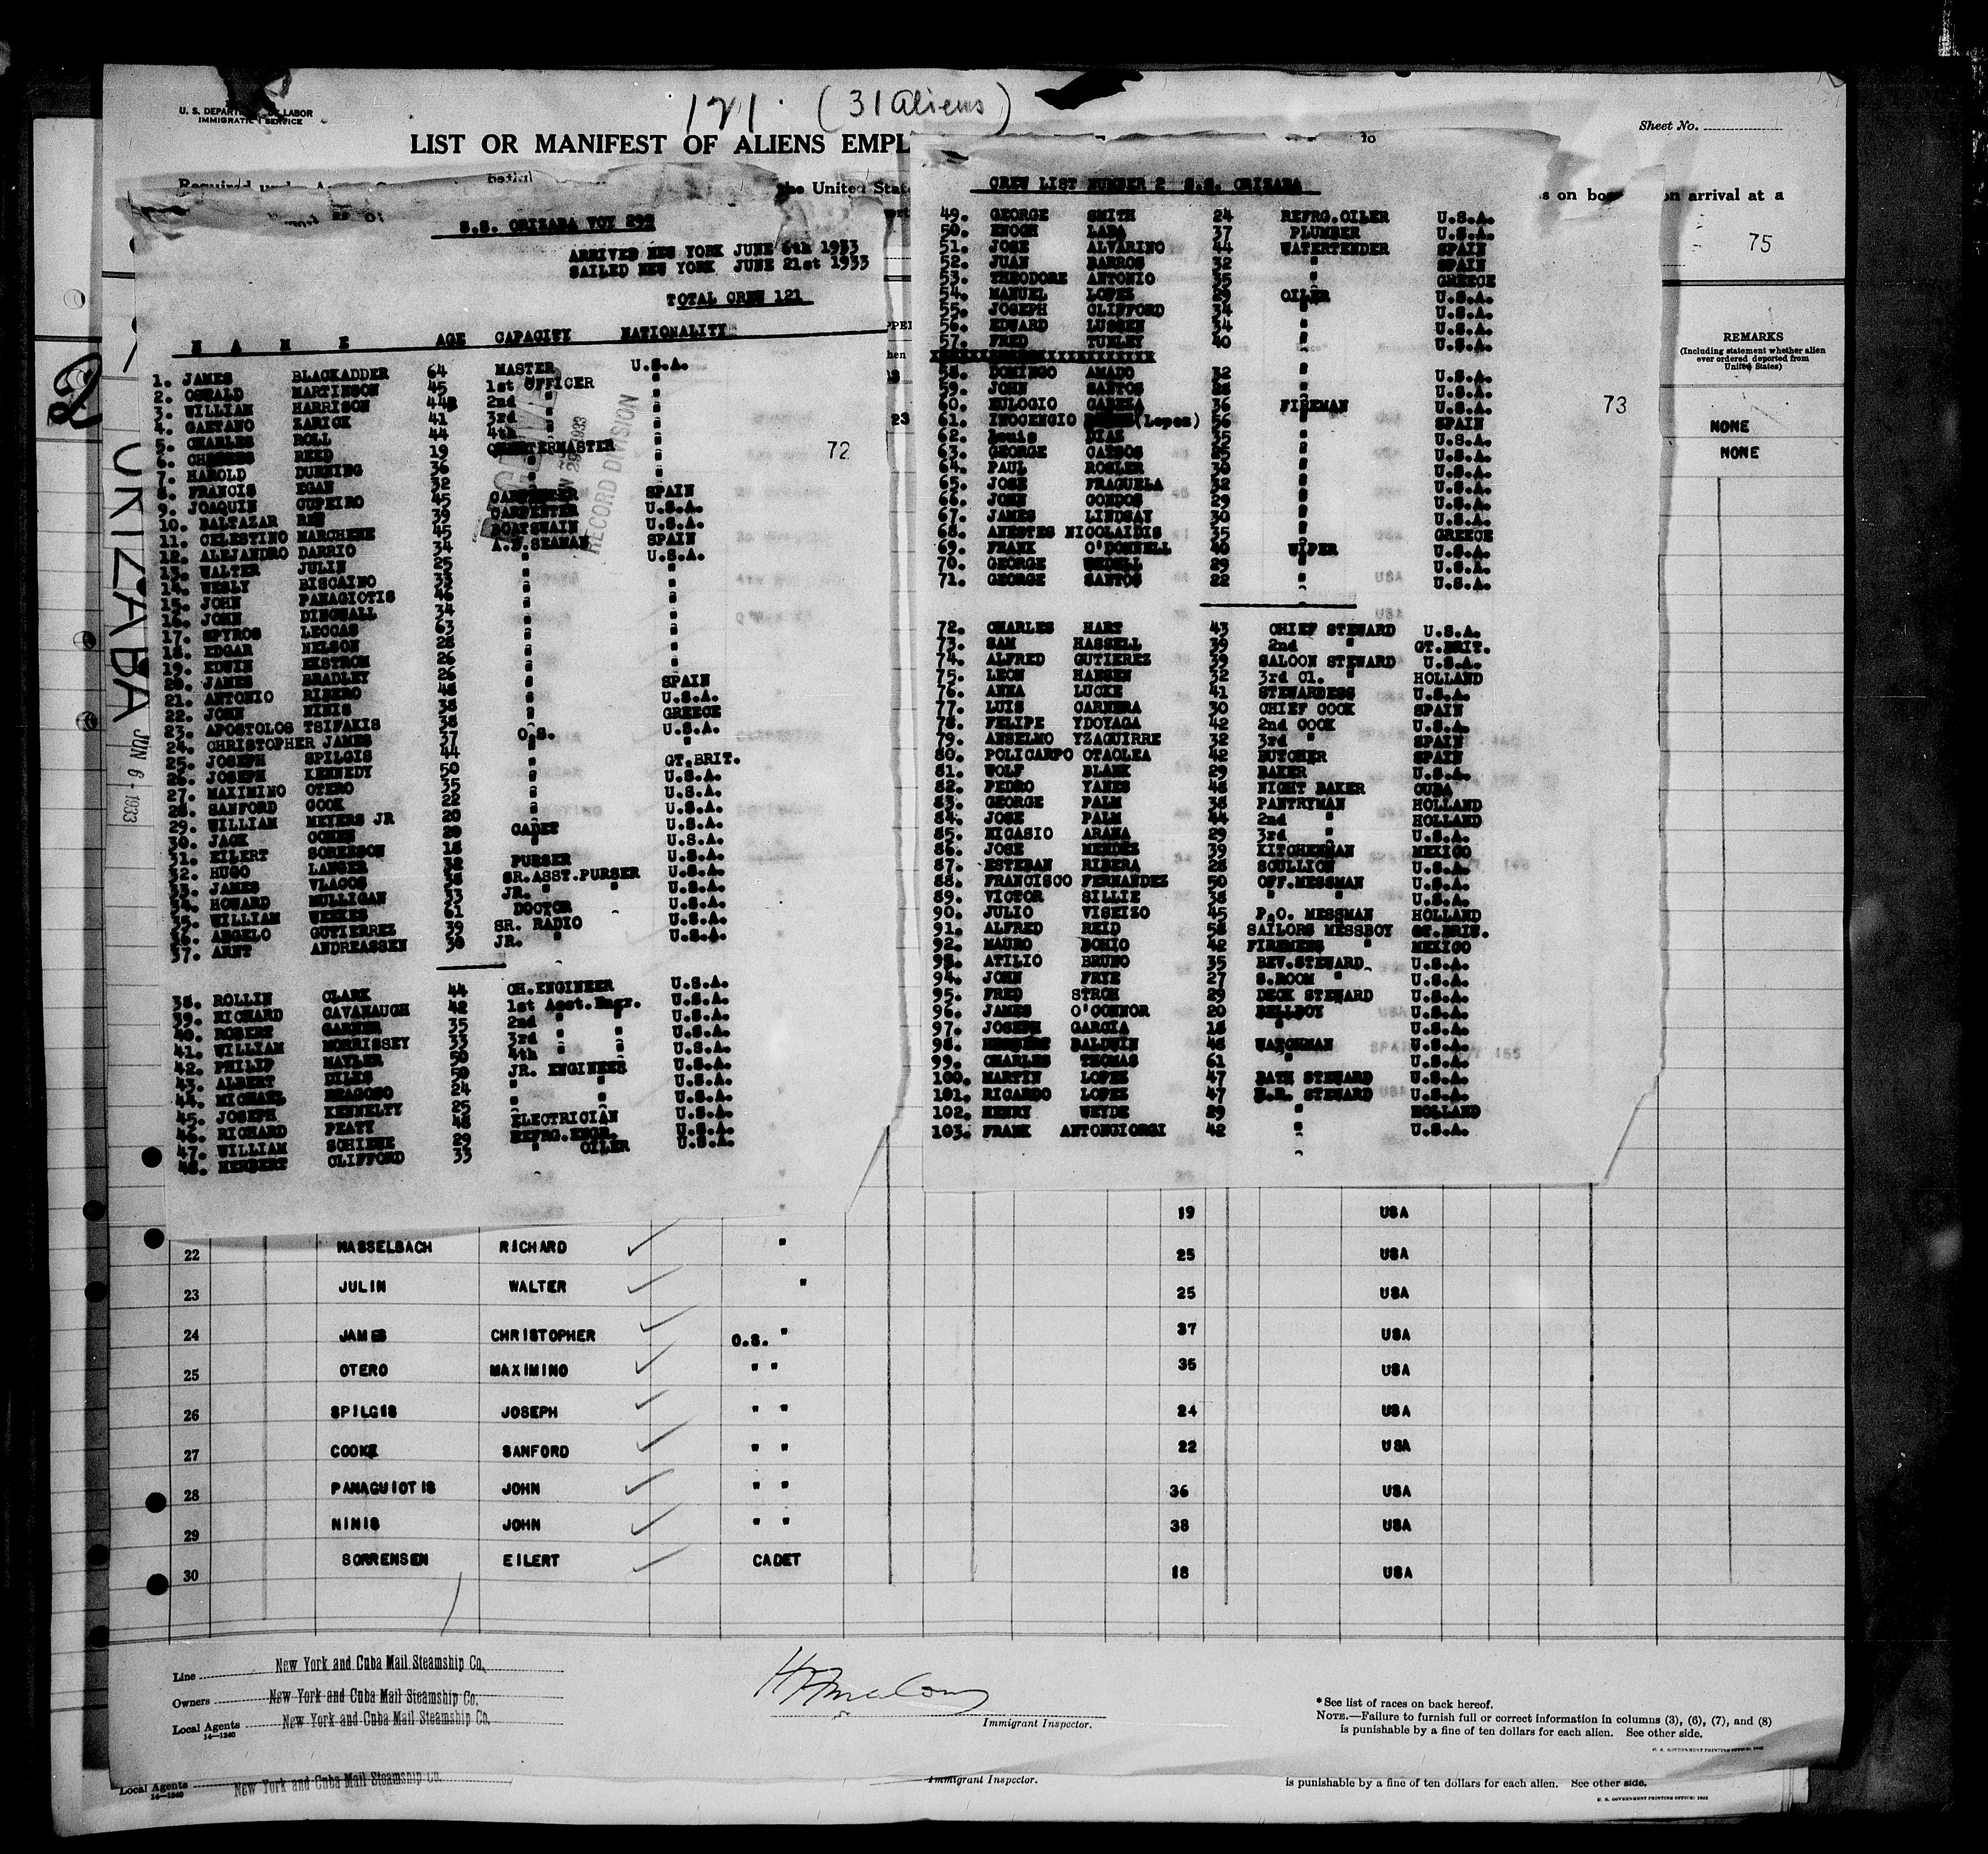 121. (31 aliens)
LABOR
LIST OR MANIFEST OF ALIENS EMPL
Sheet No.
the United Stat
s on bo
n arrival at a
75
REMARKS
(Including statement whether alien
ever ordered deported from
United States)
NONE
NONE
2
ORIZABA JUN 6 - 1933
S.S. ORIZABA VOY 299
ARRIVED NEW YORK JUNE 6th 1933
SAILED NEW YORK JUNE 21st 1933
TOTAL CREW 121
N A M E AGE CAPACITY NATIONALITY
72
RECORD DIVISION
1. JAMES BLACKADDER 64 MASTER U.S.A.
2. OSWALD MARTINSON 45 1st OFFICER "
3. WILLIAM HARRISON 2nd " "
4. GAETANO ZARICK 41 3rd " "
5. CHARLES ROLL 44 4th " "
6. REED 19 QUARTERMASTER "
7. HAROLD DUNNING 36 " "
8. FRANCIS EGAN 32 " "
9. JOAQUIN CUPEIRO 45 SPAIN
10. BALTAZAR REY 39 CARPENTER U.S.A.
11. CELESTINO MARCHENE 45 BOATSWAIN U.S.A.
12. ALEJANDRO DARRIO 34 A.B.SEAMAN SPAIN
13. WALTER JULIN 25 " U.S.A.
14. WESLY BISCAINO "
15. JOHN PANAGIOTIS 46 "
16. JOHN DINGWALL 34 "
17. SPYROS LECCAS 63 "
18. EDGAR NELSON 28 "
19. EDWIN EKSTROM 26 "
20. JAMES BRADLEY 26 "
21. ANTONIO RIBERO 48 " SPAIN
22. JOHN NINIS 38 " U.S.A.
23. APOSTOLOS TSIFAKIS 38 " GREECE
24. CHRISTOPHER JAMES 37 O.S. U.S.A.
25. JOSEPH SPILGIS 44 " "
26. JOSEPH KENNEDY 50 " GT.BRIT.
27. MAXIMINO OTERO 35 " U.S.A.
28. SANFORD COOK 22 " U.S.A.
29. WILLIAM MEYERS JR 20 " U.S.A.
30. JACK 20 CADET U.S.A.
31. EILERT SORENSON 18 " U.S.A.
32. HUGO LANGER PURSER U.S.A.
33. JAMES VLAGOS 38 SR.ASST.PURSER U.S.A.
34. HOWARD MULLIGAN 33 JR. " " U.S.A.
35. WILLIAM WEEKES 61 DOCTOR U.S.A.
36. ANGELO GUTIERREZ 39 SR. RADIO U.S.A.
37. ARNT ANDREASSEN 30 JR. " U.S.A.
38. ROLLIN CLARK 44 CH.ENGINEER U.S.A.
39. RICHARD CAVANAUGH 42 1st Asst.Engr. U.S.A.
40. ROBERT GARNER 35 2nd " " U.S.A.
41. WILLIAM MORRISSEY 33 3rd " " U.S.A.
42. PHILIP MAYLER 50 4th " " U.S.A.
43. ALBERT DILES 50 JR. ENGINEER U.S.A.
44. MICHAEL BRAGOSO 24 " " U.S.A.
45. JOSEPH KENNELTY 25 " " U.S.A.
46. RICHARD PEATY 48 ELECTRICIAN U.S.A.
47. WILLIAM SCHIENE 29 REFRG.ENGR. U.S.A.
48. HERBERT CLIFFORD 33 " OILER U.S.A.
CREW LIST NUMBER 2 S.S. ORIZABA
73
49. GEORGE SMITH 24 REFRG.OILER U.S.A.
50. ENOCH LADA 37 PLUMBER U.S.A.
51. JOSE ALVARINO 44 WATERTENDER SPAIN
52. JUAN BARROS 32 " SPAIN
53. THEODORE ANTONIO 35 " GREECE
54. MANUEL LOPEZ 29 OILER U.S.A.
55. JOSEPH CLIFFORD 34 " U.S.A.
56. EDWARD LUSSEN 34 " U.S.A.
57. FRED TURLEY 40 " U.S.A.
58. DOMINGO AMADO 32 " U.S.A.
59. JOHN SANTOS 28 " U.S.A.
60. EULOGIO GAREZA 36 FIREMAN U.S.A.
61. INOCENCIO (Lopez) 56 " SPAIN
62. Louis DIAZ 35 " U.S.A.
63. GEORGE CATSOS 25 " U.S.A.
64. PAUL ROSLER 30 " U.S.A.
65. JOSE FRAGUELA 32 " U.S.A.
66. JOHN CONDOS 29 " U.S.A.
67. JAMES LINDSAY 30 " U.S.A.
68. ANESTES NICOLAIDIS 35 " GREECE
69. FRANK O'DONNELL 40 WIPER U.S.A.
70. GEORGE WEDELL 29 " U.S.A.
71. GEORGE SANTOS 22 " U.S.A.
72. CHARLES HART 43 CHIEF STEWARD U.S.A.
73. SAM HASSELL 39 2nd " GT.BRIT.
74. ALFRED GUTIEREZ 39 SALOON STEWARD U.S.A.
75. LEON HANSEN 32 3rd Cl. " HOLLAND
76. ANNA LUCKE 41 STEWARDESS U.S.A.
77. LUIS CARNERA 30 CHIEF COOK SPAIN
78. FELIPE YDOYAGA 42 2nd COOK U.S.A.
79. ANSELMO YZAGUIRRE 32 3rd " SPAIN
80. POLICARPO OTAOLEA 42 BUTCHER SPAIN
81. WOLF BLANK 29 BAKER U.S.A.
82. PEDRO YANES 48 NIGHT BAKER CUBA
83. GEORGE PALM 38 PANTRYMAN HOLLAND
84. JOSE PALM 44 2nd " HOLLAND
85. NICASIO ARANA 29 3rd " U.S.A.
86. JOSE MENDEZ 39 KITCHENMAN MEXICO
87. ESTEBAN RIBERA 28 SCULLION U.S.A.
88. FRANCISCO FERNANDEZ 50 OFF.MESSMAN U.S.A.
89. VICTOR SILLIE 38 " " U.S.A.
90. JULIO VISEIZO 45 P.O. MESSMAN HOLLAND
91. ALFRED REID 58 SAILORS MESSBOY GT.BRIT.
92. MAURO BOHIO 42 FIREMENS " MEXICO
93. ATILIO BRUNO 35 BEV.STEWARD U.S.A.
94. JOHN FRYE 27 S.ROOM " U.S.A.
95. FRED STROH 29 DECK STEWARD U.S.A.
96. JAMES O'CONNOR 20 BELLBOY U.S.A.
97. JOSEPH GARCIA 18 " U.S.A.
98. BALDWIN 48 WATCHMAN U.S.A.
99. CHARLES THOMAS 61 " U.S.A.
100. MARTIN LOPEZ 47 BATH STEWARD U.S.A.
101. RICARDO LOPEZ 47 S.R. STEWARD U.S.A.
102. HENRY WEYDE 29 " HOLLAND
103. FRANK ANTONGIORGI 42 " U.S.A.
19 USA
22 HASSELBACH RICHARD " 25 USA
23 JULIN WALTER " 25 USA
24 JAMES CHRISTOPHER O.S. " 37 USA
25 OTERO MAXIMINO " " 35 USA
26 SPILGIS JOSEPH " " 24 USA
27 COOKE SANFORD " " 22 USA
28 PANAGUIOTIS JOHN " " 36 USA
29 NINIS JOHN " " 38 USA
30 SORRENSEN EILERT CADET 18 USA
Line New York and Cuba Mail Steamship Co.
Owners New York and Cuba Mail Steamship Co.
Local Agents New York and Cuba Mail Steamship Co.
14—1240
Immigrant Inspector.
* See list of races on back hereof.
NOTE.—Failure to furnish full or correct information in columns (3), (6), (7), and (8)
is punishable by a fine of ten dollars for each alien. See other side.
Local Agents New York and Cuba Mail Steamship Co.
14—1240
Immigrant Inspector.
is punishable by a fine of ten dollars for each alien. See other side.
U. S. GOVERNMENT PRINTING OFFICE: 1932